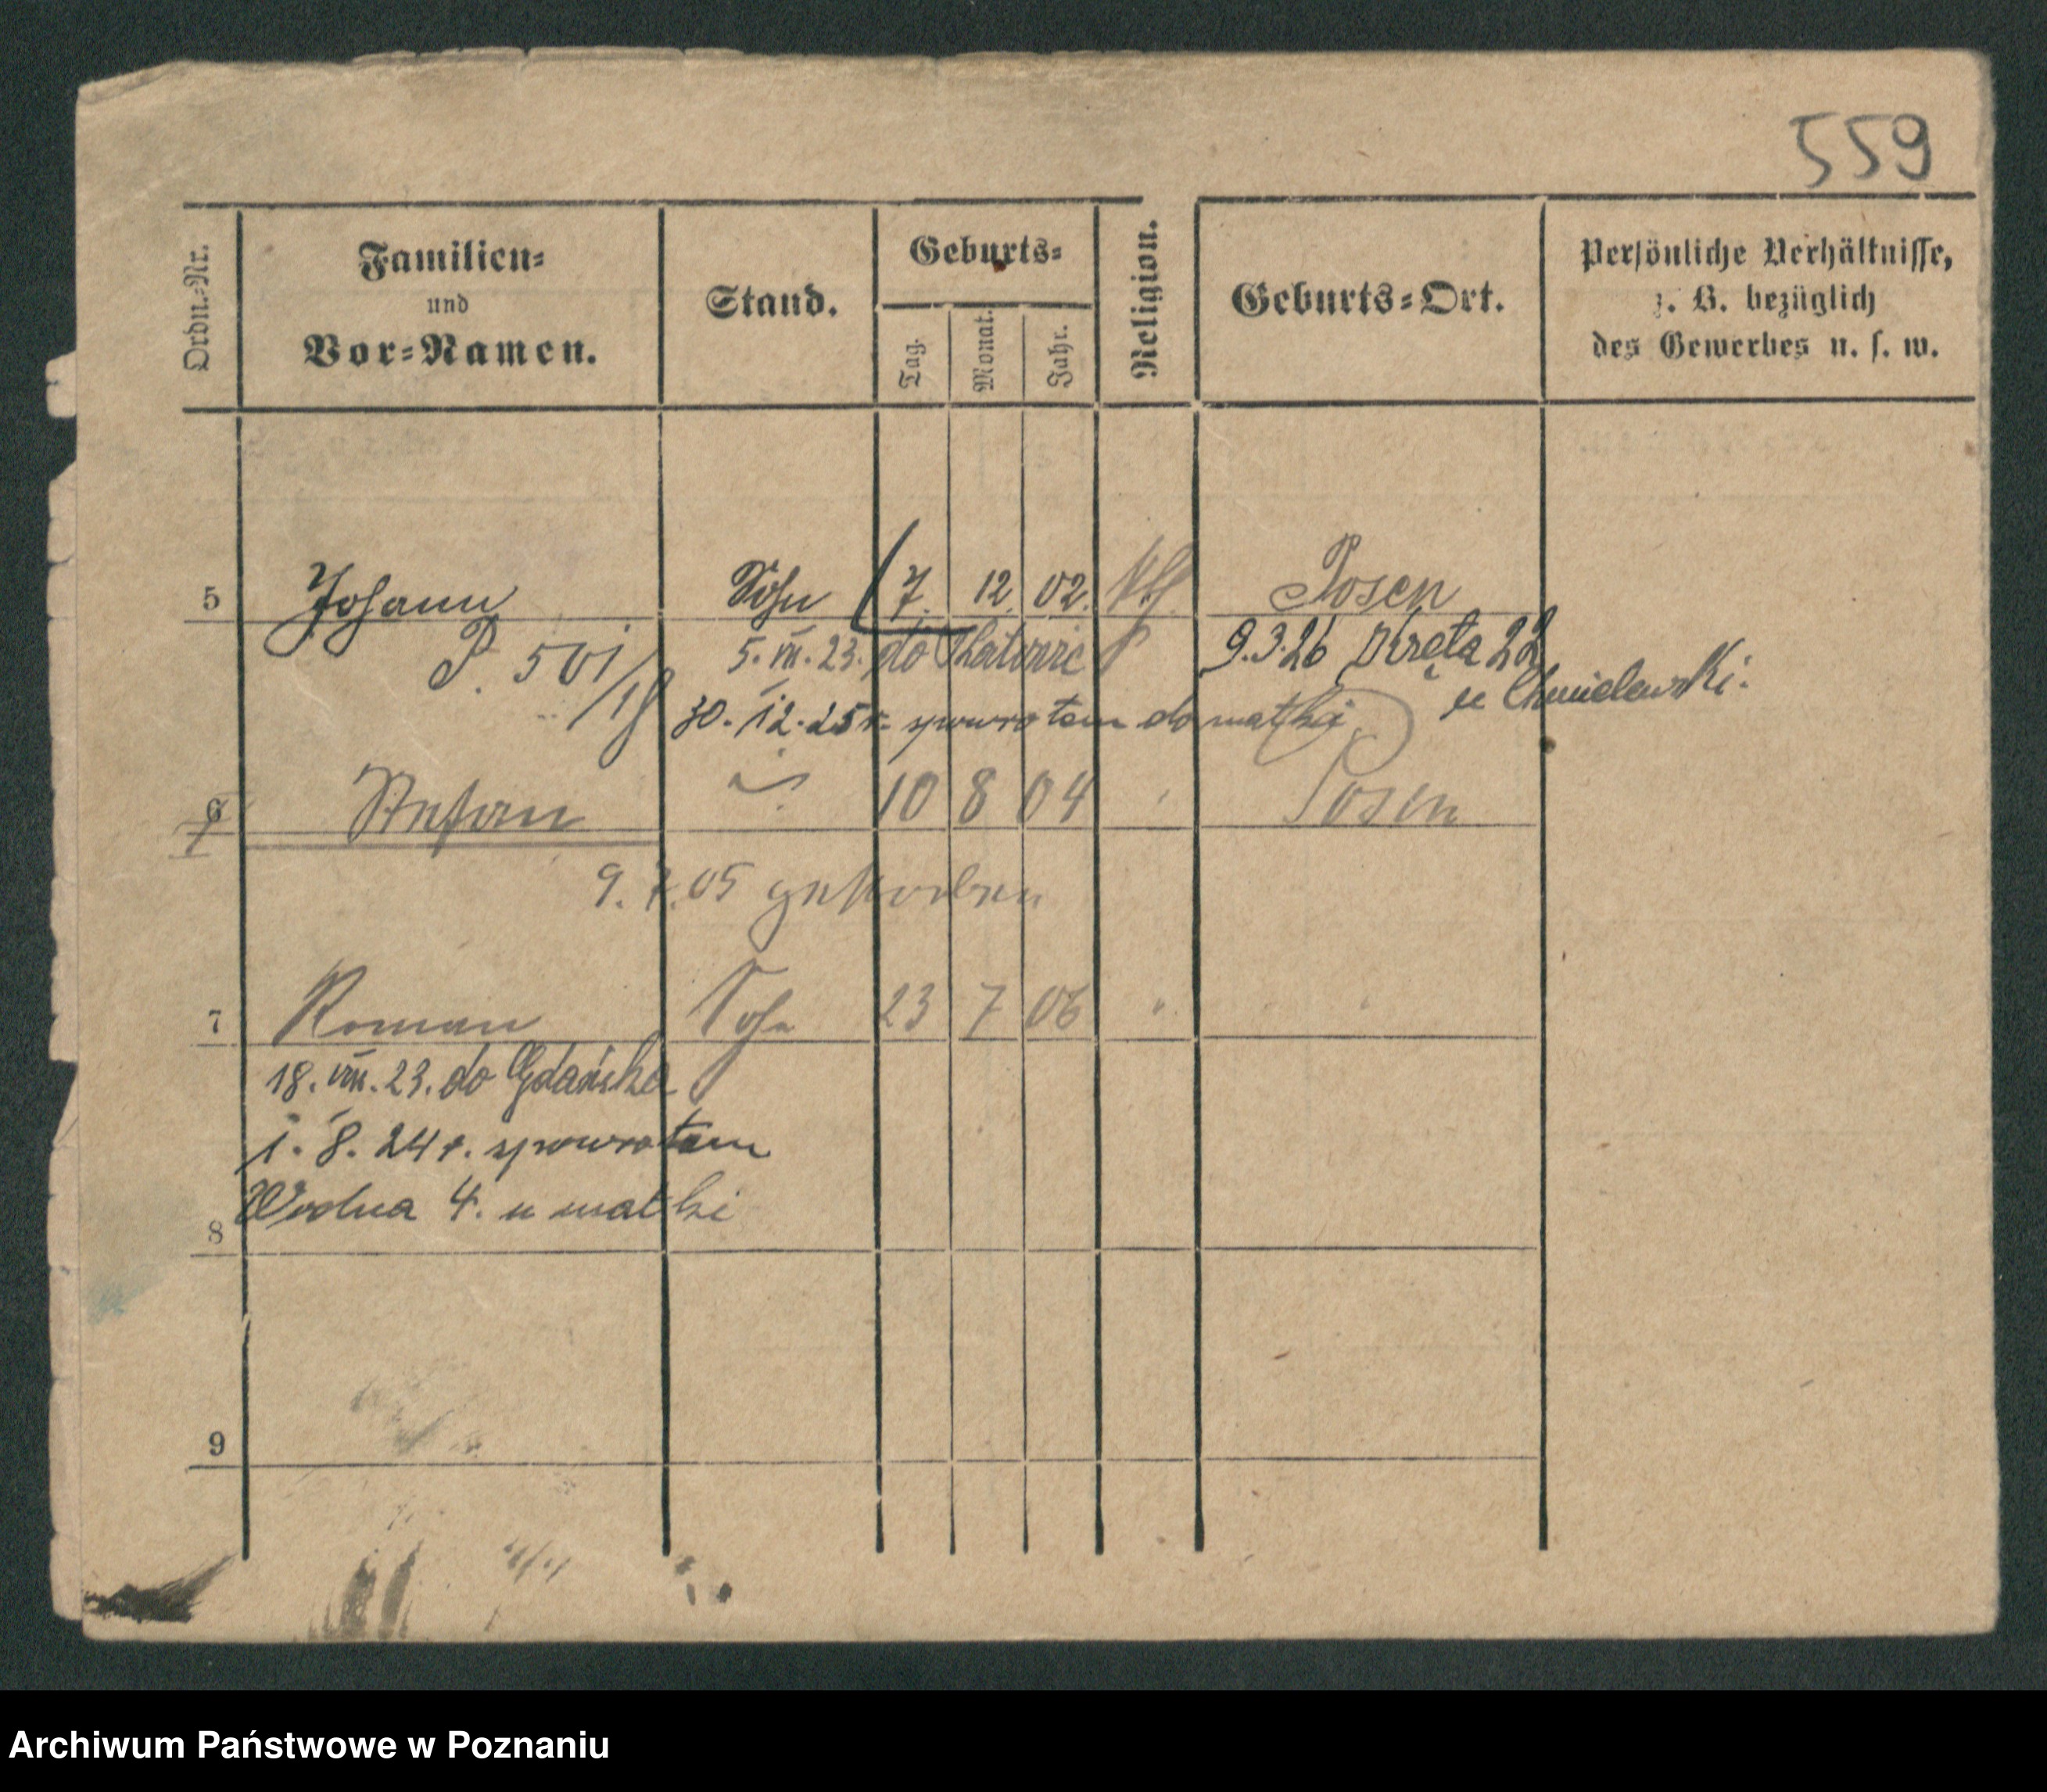 559
Ordn.-Nr.
Familien-
und
Vor-Namen.
Stand.
Geburts-
Tag.
Monat.
Jahr.
Religion.
Geburts-Ort.
Persönliche Verhältnisse,
z. B. bezüglich
des Gewerbes u. s. w.
5 Johann Sohn 7. 12. 02. Kth. Posen
P. 501
5. VII. 23. do Katowic 9.3.26 Kręta 22
u Chmielewski.
30. 12. 25 r. spowrotem do matki
6 Stefan 10 8 04 Posen
9. 7. 05 gestorben
7 Roman Sohn 23 7 06 " "
18. VIII. 23. do Gdańska
1. 8. 24 r. spowrotem
Wodna 4. u matki
8
9
Archiwum Państwowe w Poznaniu